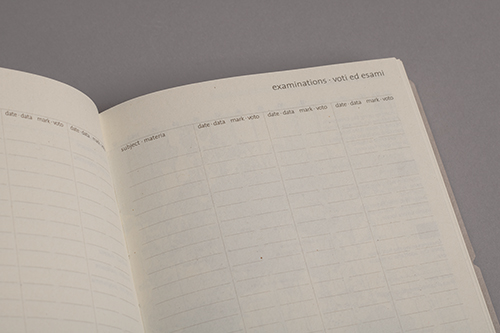 examinations · voti ed esami
date · data mark · voto date · data
subject · materia date · data mark · voto date · data mark · voto date · data mark · voto